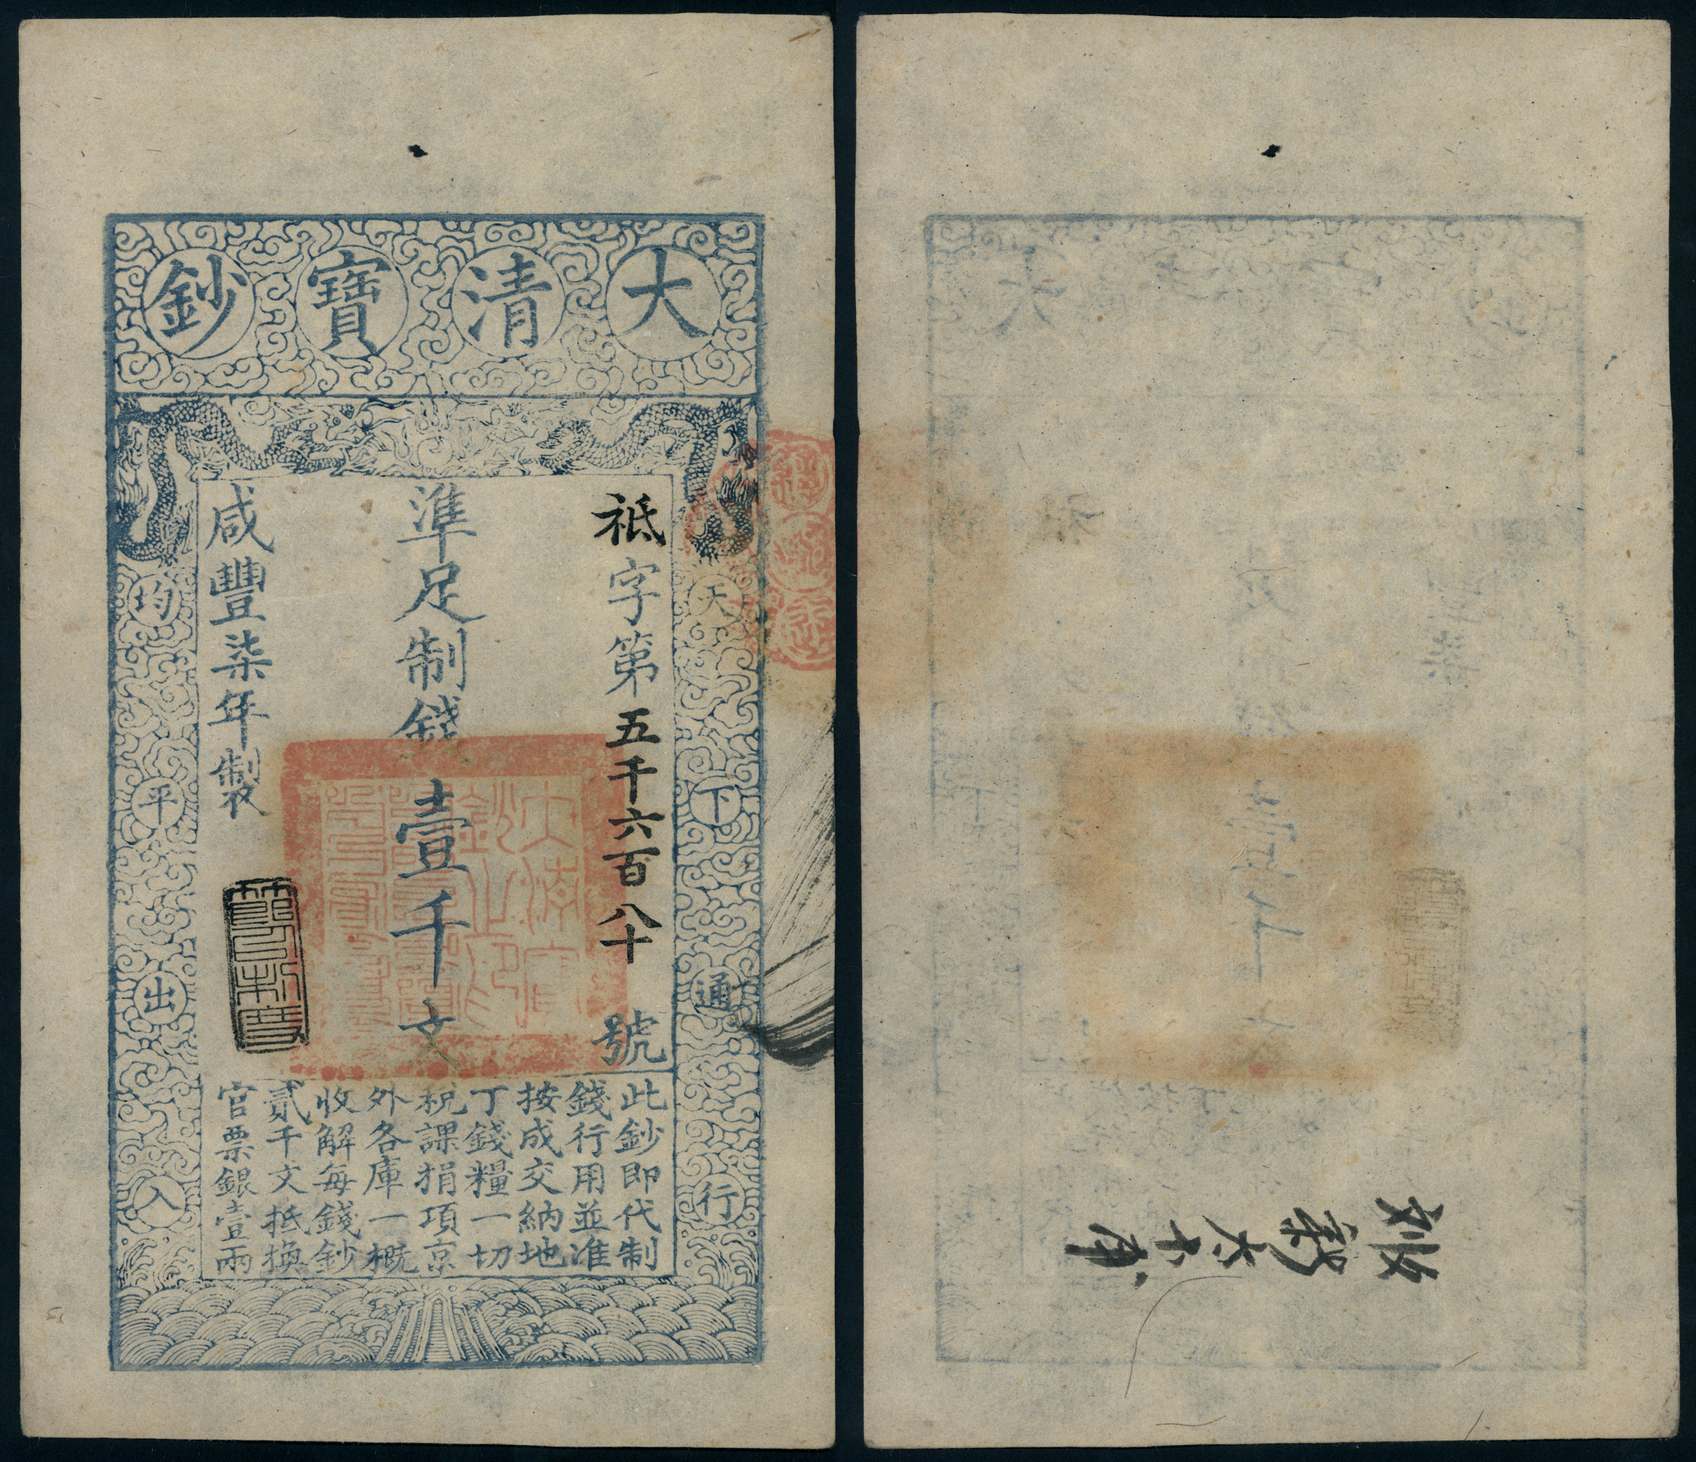 大清寶鈔
天下通行
祗字第五千六百八十號
準足制錢壹千文
咸豐柒年製
均平出入
此鈔即代制
錢行用並准
按成交納地
丁錢糧一切
稅課捐項京
外各庫一概
收解每錢鈔
貳千文抵換
官票銀壹兩
大清寶鈔之印